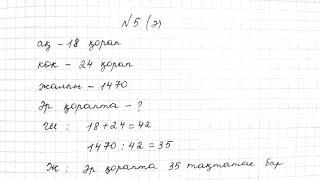 №5 (ә)
ақ – 18 қорап
көк – 24 қорап
жалпы – 1470
Әр қорапта – ?
Ш : 18 + 24 = 42
1470 : 42 = 35
Ж : Әр қорапта 35 тақтатас бар